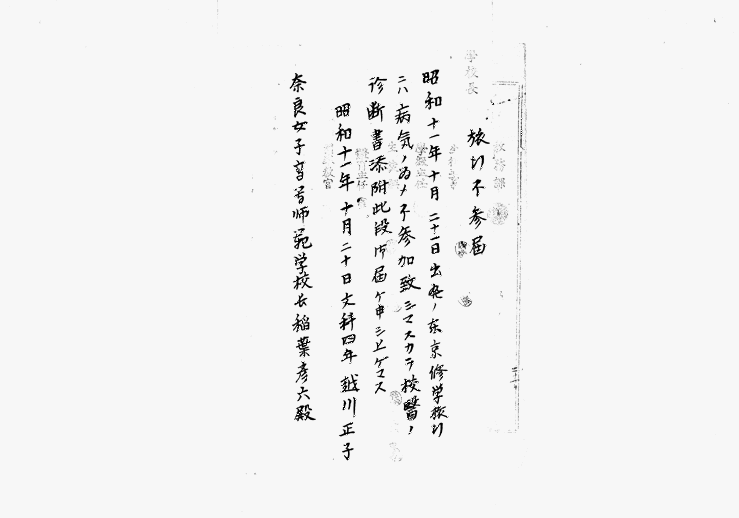 旅行不参届
昭和十一年十月二十一日出発ノ东京修学旅行
ニハ病気ノ為メ不参加致シマスカラ校醫ノ
診断書添附此段御届ケ申シ上ゲマス
昭和十一年十月二十日文科四年越川正子
奈良女子高等师範学校长稲葉彦六殿
学校長